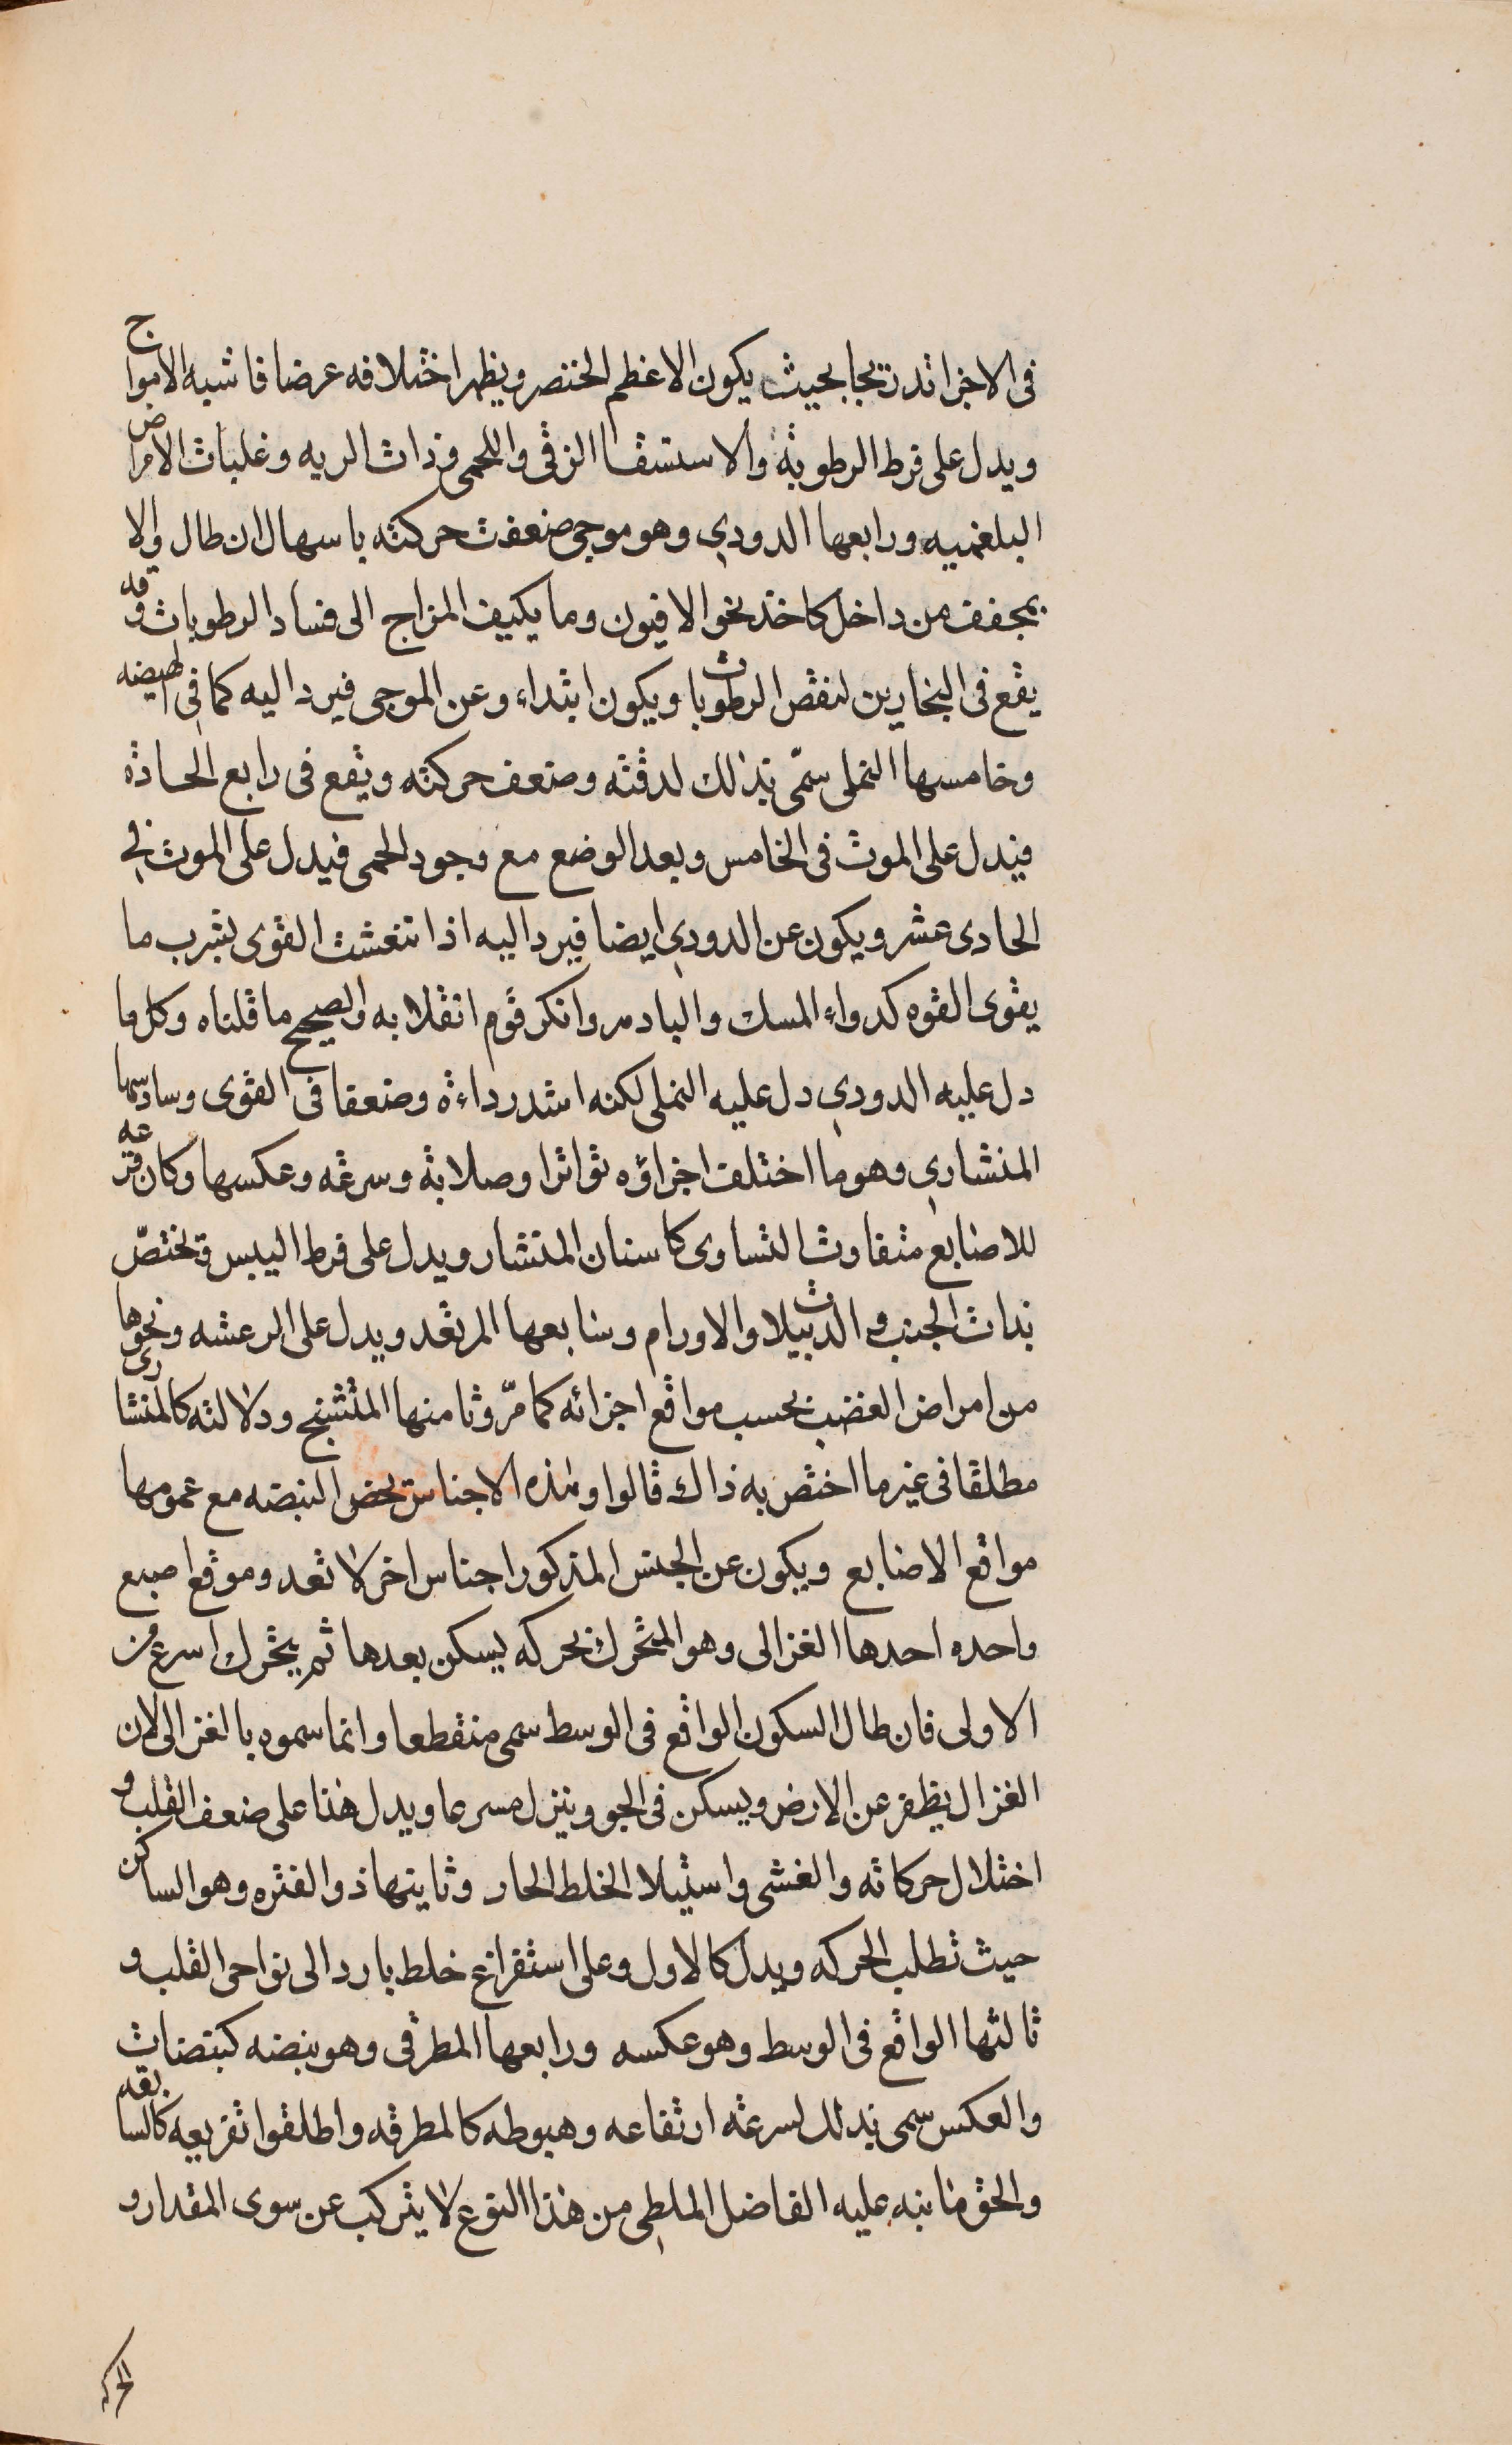 فى الاجزا تدريجا بحيث يكون الاعظم الخنصر ويظهر اختلافه عرضا فاشبه الامواج
ويدل على فرط الرطوبة والاستسقا الزقى واللحمى وذات الريه وغلبات الامراض
البلغميه ورابعها الدودي وهو موجى ضعفت حركته باسهال ان طال والا
بمجفف من داخل كاخذ نحو الافيون وما يكيف المزاج الى فساد الرطوبات وقد
يقع فى البخارين لنقص الرطوبات ويكون ابتداء وعن الموجى فيرد اليه كما فى الهيضه
وخامسها النملى سمّى بذلك لدقته وضعف حركته ويقع فى رابع الحادة
فيدل على الموت فى الخامس وبعد الوضع مع وجود الحمى فيدل على الموت في
الحادى عشر ويكون عن الدودي ايضا فيرد اليه اذا تنعشت القوى بشرب ما
يقوى القوه كدواء المسك والبادمر وانكر قوم انقلابه والصحيح ما قلناه وكل ما
دل عليه الدودي دل عليه النملى لكنه اشد رداءة وضعفا فى القوى وسادسها
المنشاري وهو ما اختلف اجزاؤه تواترا وصلابة وسرعه وعكسها وكان قرعه
للاصابع متفاوت التساوى كاسنان المنشار ويدل على فرط اليبس وتختصّ
بذات الجنب والدبيلات والاورام وسابعها المرتعد ويدل على الرعشه ونحوها
من امراض العضب بحسب مواقع اجزائه كما مرّ وثامنها المتشنج ودلالته كالمنشارى
مطلقا فى غير ما اختص به ذاك قالوا وهذه الاجناس تخص النبضه مع عمومها
مواقع الاصابع ويكون عن الجنس المذكور اجناس اخر لا تعد وموقع اصبع
واحده احدها الغزالى وهو المتحرك بحركه يسكن بعدها ثم يتحرك اسرع من
الاولى فان طال السكون الواقع فى الوسط سمى منقطعا وانما سموه بالغزالى لان
الغزال يظفر عن الارض ويسكن فى الجو وينزل مسرعا ويدل هذا على ضعف القلب و
اختلال حركاته والغشى واستيلا الخلط الحار وثانيتها ذو الفتره وهو الساكن
حيث تطلب الحركه ويدل كالاول وعلى استفراغ خلط بارد الى نواحى القلب و
ثالثها الواقع فى الوسط وهو عكسه ورابعها المطرقى وهو نبضه كنبضات
والعكس سمى بذلك لسرعة ارتفاعه وهبوطه كالمطرقه واطلقوا تفريعه كالسابقه
والحق ما نبه عليه الفاضل الملطي من هذا النوع لا يتركب عن سوى المقدار و
الحركه